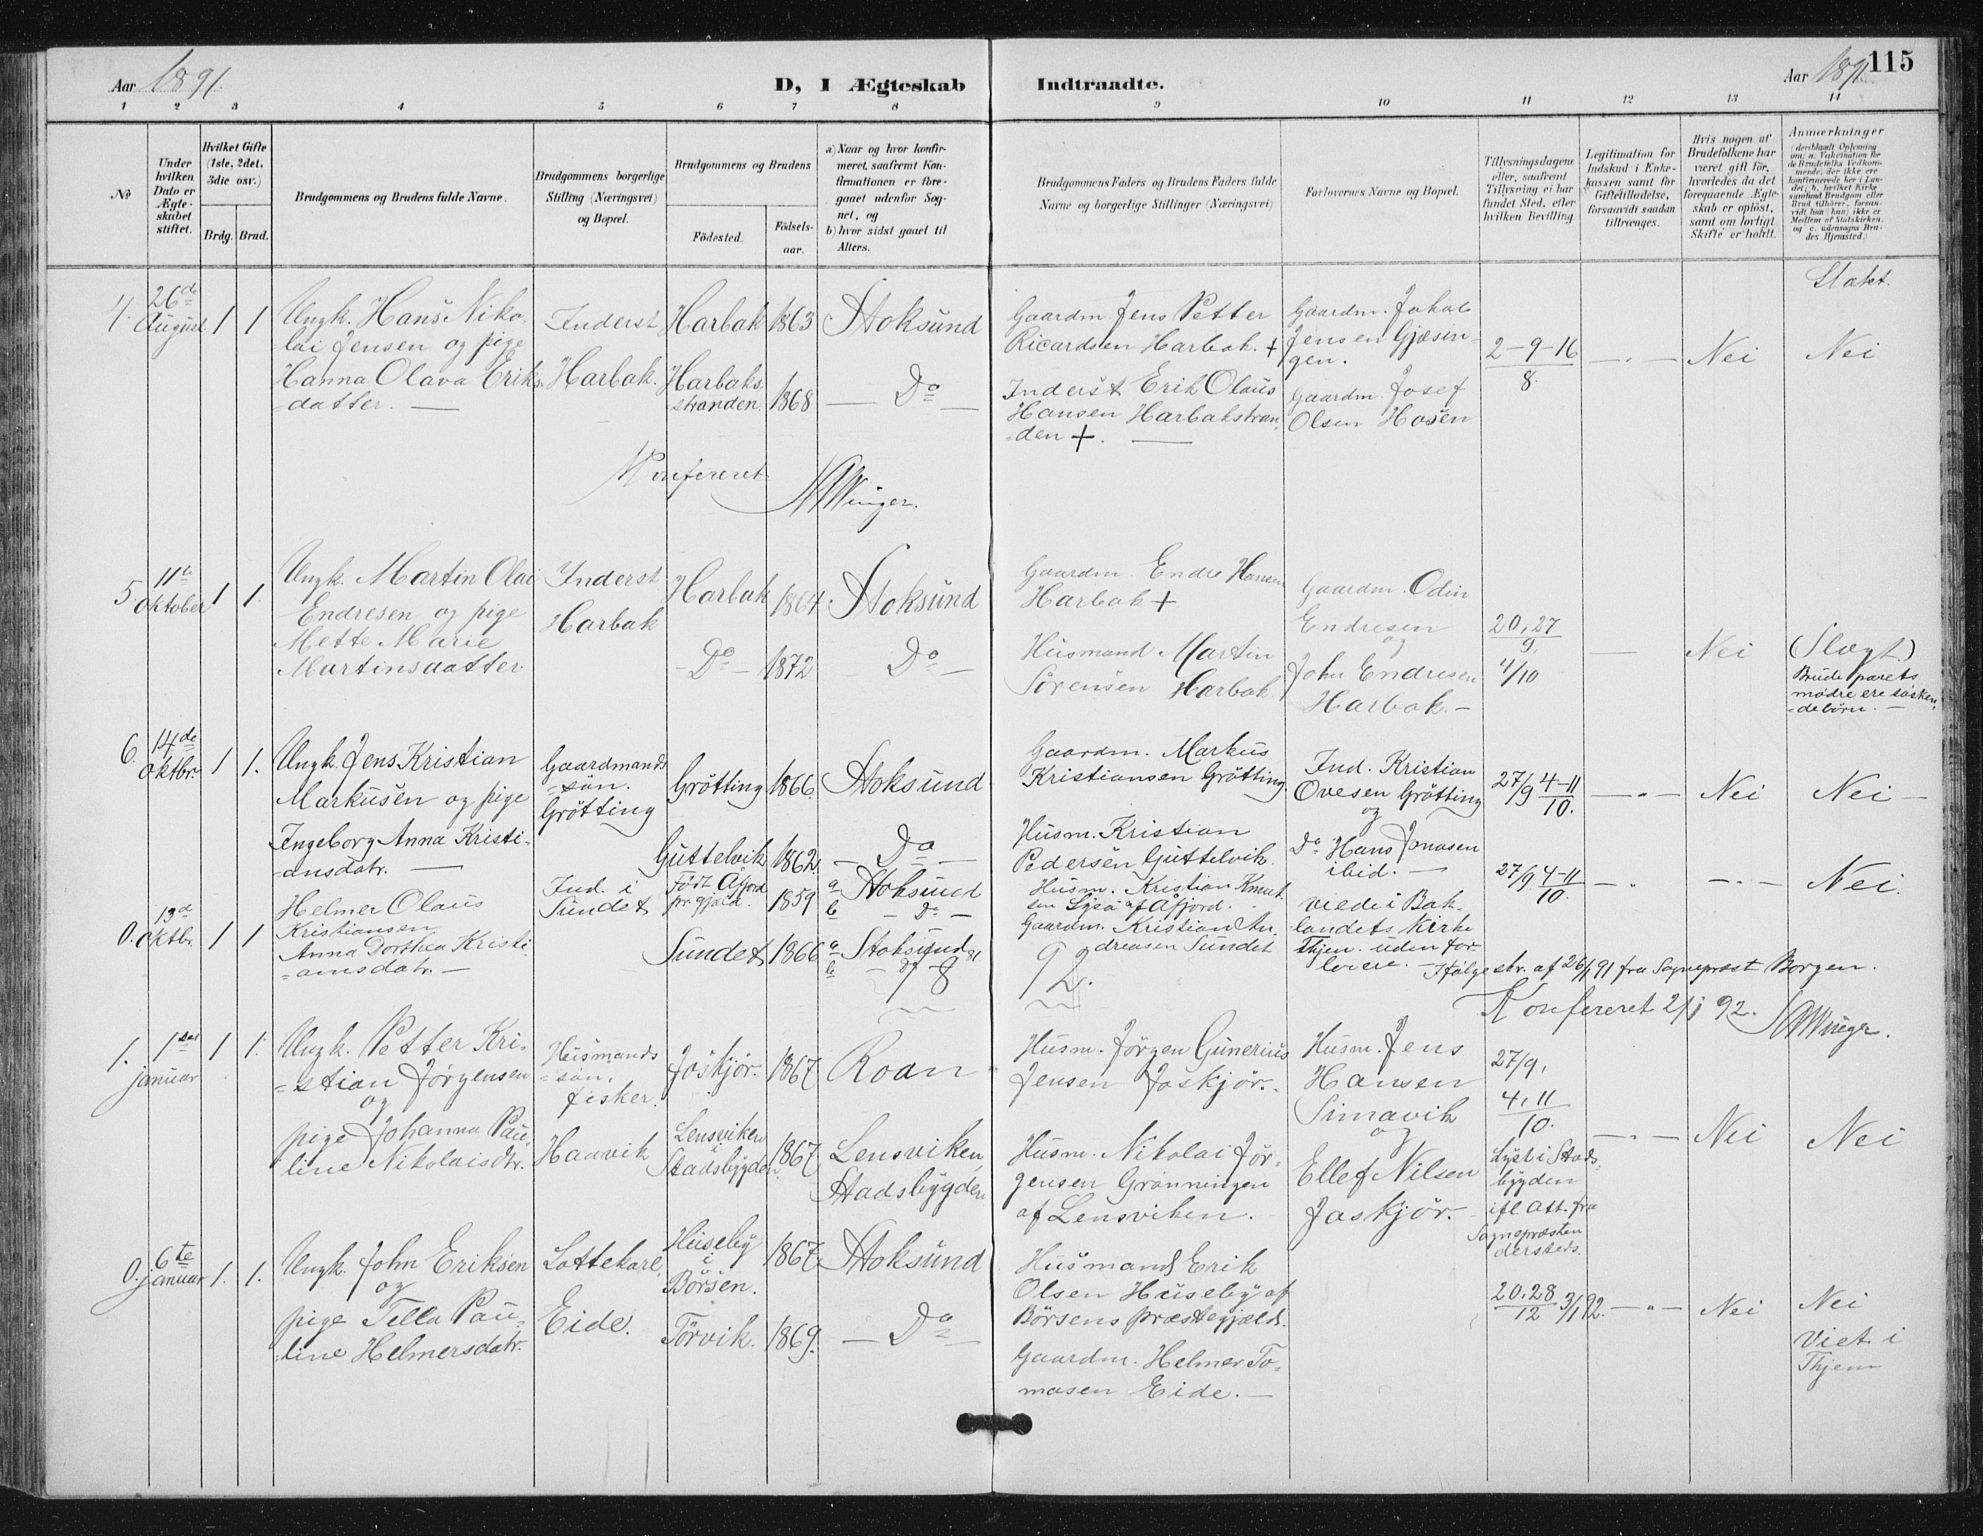 Aar 1891.
D, I Ægteskab Indtraadte.
Aar 1891. 115
1 2 3 4 5 6 7 8 9 10 11 12 13 14
№
Under hvilken Dato er Ægteskabet stiftet.
Hvilket Gifte (1ste, 2det, 3die osv.)
Brdg. Brud.
Brudgommens og Brudens fulde Navne.
Brudgommens borgerlige Stilling (Næringsvei) og Bopæl.
Brudgommens og Brudens
Fødested.
Fødsels-aar.
a) Naar og hvor konfirmeret, saafremt Konfirmationen er foregaaet udenfor Sognet, og
b) hvor sidst gaaet til Alters.
Brudgommens Faders og Brudens Faders fulde Navne og borgerlige Stillinger (Næringsvei)
Forlovernes Navne og Bopæl.
Tillysningsdagene eller, saafremt Tillysning ei har fundet Sted, efter hvilken Bevilling.
Legitimation for Indskud i Enkekassen samt for Giftetilladelse, forsaavidt saadan tiltrænges.
Hvis nogen af Brudefolkene har været gift før, hvorledes da det foregaaende Ægteskab er opløst, samt om lovligt Skifte er holdt.
Anmærkninger
4. 26de August 1 1
Ungk. Hans Niko-
lai Jensen og pige
Hanna Olava Eriks-
datter. —
Inderst
Harbak.
Harbak 1863 Stoksund
Harbaks
stranden. 1868 — Do —
Gaardm. Jens Petter
Ricardsen Harbak. +
Inderst Erik Olaus
Hansen Harbakstran-
den +. —
Gaardm. Jakob
Jensen Gjæsin-
gen.
Gaardm. Josef
Olsen Hosen
2-9-16
8.
— " — Nei
Slækt.
Nei
Konfereret
NAWinger.
5. 11te Oktober 1 1.
Ungk. Martin Olai
Endresen og pige
Mette Marie
Martinsdatter
Inderst
Harbak
Harbak 1864. Stoksund
— Do — 1872 — Do —
Gaardm. Endre Hansen
Harbak +
Husmand Martin
Sörensen Harbak
Gaardm. Odin
Endresen
og
John Endresen
Harbak. —
20, 27
9,
4/10
— Nei
(Slægt.)
Brude parets
mødre ere søsken-
debörn. —
6. 14de Oktbr. 1 1.
Ungk. Jens Kristian
Markusen og pige
Ingeborg Anna Kristi-
ansdatr. —
Gaardmands
sön.
Grötting
Grötting 1866. Stoksund
Guttelvik 1862. — Do —
Gaardm. Markus
Kristiansen Grötting
Husm. Kristian
Pedersen Guttelvik.
Ind. Kristian
Ovesen Grötting
og
Do Hans Jonasen
ibid. —
27/9 4-11
10.
— " — Nei Nei —
0. 13de Oktbr. 1 1
Helmer Olaus
Kristiansen
Anna Dorthea Kristi-
ansdatr. —
Ind. i
Sundet
Født Afjord
pr.gjæld. 1859 a Stoksund
b — Do —
Sundet 1866. a Stoksund
b
Husm. Kristian Knut-
sen Lysø af Afjord.
Gaardm. Kristian An-
dreasen Sundet
viede i Bak-
landets Kirke
Thjem. uden for-
lovere. —
27/9. 4-11
10.
— " — — " — Nei.
Ifölge skr. af 26/1 91 fra Sognepræst Borgen.
18 92.
Konfereret 2/1 92. NAWinger.
1. 1ste januar 1 1.
Ungk. Petter Kri-
stian Jörgensen
og
pige Johanna Pau-
line Nikolaisdtr.
Husmands
sön,
fisker.
Hauvik
Joskjör. 1867. Roan
Lensviken
i
Stadsbygden. 1867. Lensviken,
Stadsbygden
Husm. Jörgen Gunerius
Jensen Joskjör.
Husm. Nikolai Jör-
gensen Grönningen
af Lensviken.
Husm. Jens
Hansen
Simavik
og
Ellef Nilsen
Jaskjör.
27/9,
4, 11
10.
Lyst i Stads-
bygden
ifl att. fra
Sognepræsten
dersteds.
— " — Nei Nei
0. 6te januar 1. 1.
Ungk. John Eriksen
og
pige Tella Pau-
line Helmersdatr.
Lottekarl,
Eide.
Huseby
i
Börsen. 1867. Stoksund
Törvik. 1869. — Do —
Husmand Erik
Olsen Huseby af
Börsens præstegjæld.
Gaardm. Helmer To-
masen Eide. —
20, 28
12 3/1 92.
— " — Nei Nei
Viet i
Thjem